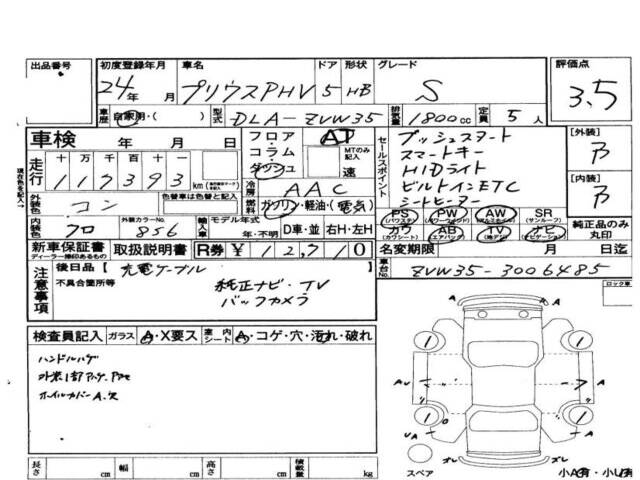 出品番号 初度登録年月 車名 ドア 形状 グレード 評価点
24年 月 プリウスPHV 5 HB S 3.5
車歴 自家用・( ) 型式 DLA-ZVW35 排気量 1800cc 定員 5人
車検 年 月 日 フロア・コラム・ダッシュ AT MTのみ記入 速
セールスポイント プッシュスタート
スマートキー
HIDライト
ビルトインETC
シートヒーター
[外装] B
[内装] B
現在色を記入→
走行 十 万 千 百 十 一
117393 km
冷房 AAC
外装色 コン 色替車は色替と記入 ガソリン・軽油・(電気)
PS (パワステ) PW (パワーウィンド) AW (アルミホイル) SR (サンルーフ)
カワ (カワシート) AB (エアバッグ) TV (地デジ) ナビ (ナビゲーション)
純正品のみ丸印
内装色 クロ 外装カラーNo. 856 輸入車 モデル年式 年・不明 D車・並 右H・左H
新車保証書 ディーラー捺印あるもの 取扱説明書 R券 ¥12,710
名変期限 月 日迄
注意事項 後日品【 充電ケーブル
不具合箇所等 純正ナビ・TV
バックカメラ
車台No. ZVW35-3006485
ロック車
検査員記入 ガラス A・X要ス 室内シート A・コゲ・穴・汚れ・破れ
ハンドルハゲ
ホイルカバーA.欠
A A
A
UA
ズレ ズレ
スペア
小A有・小U有
長さ cm 幅 cm 高さ cm 積載量 kg